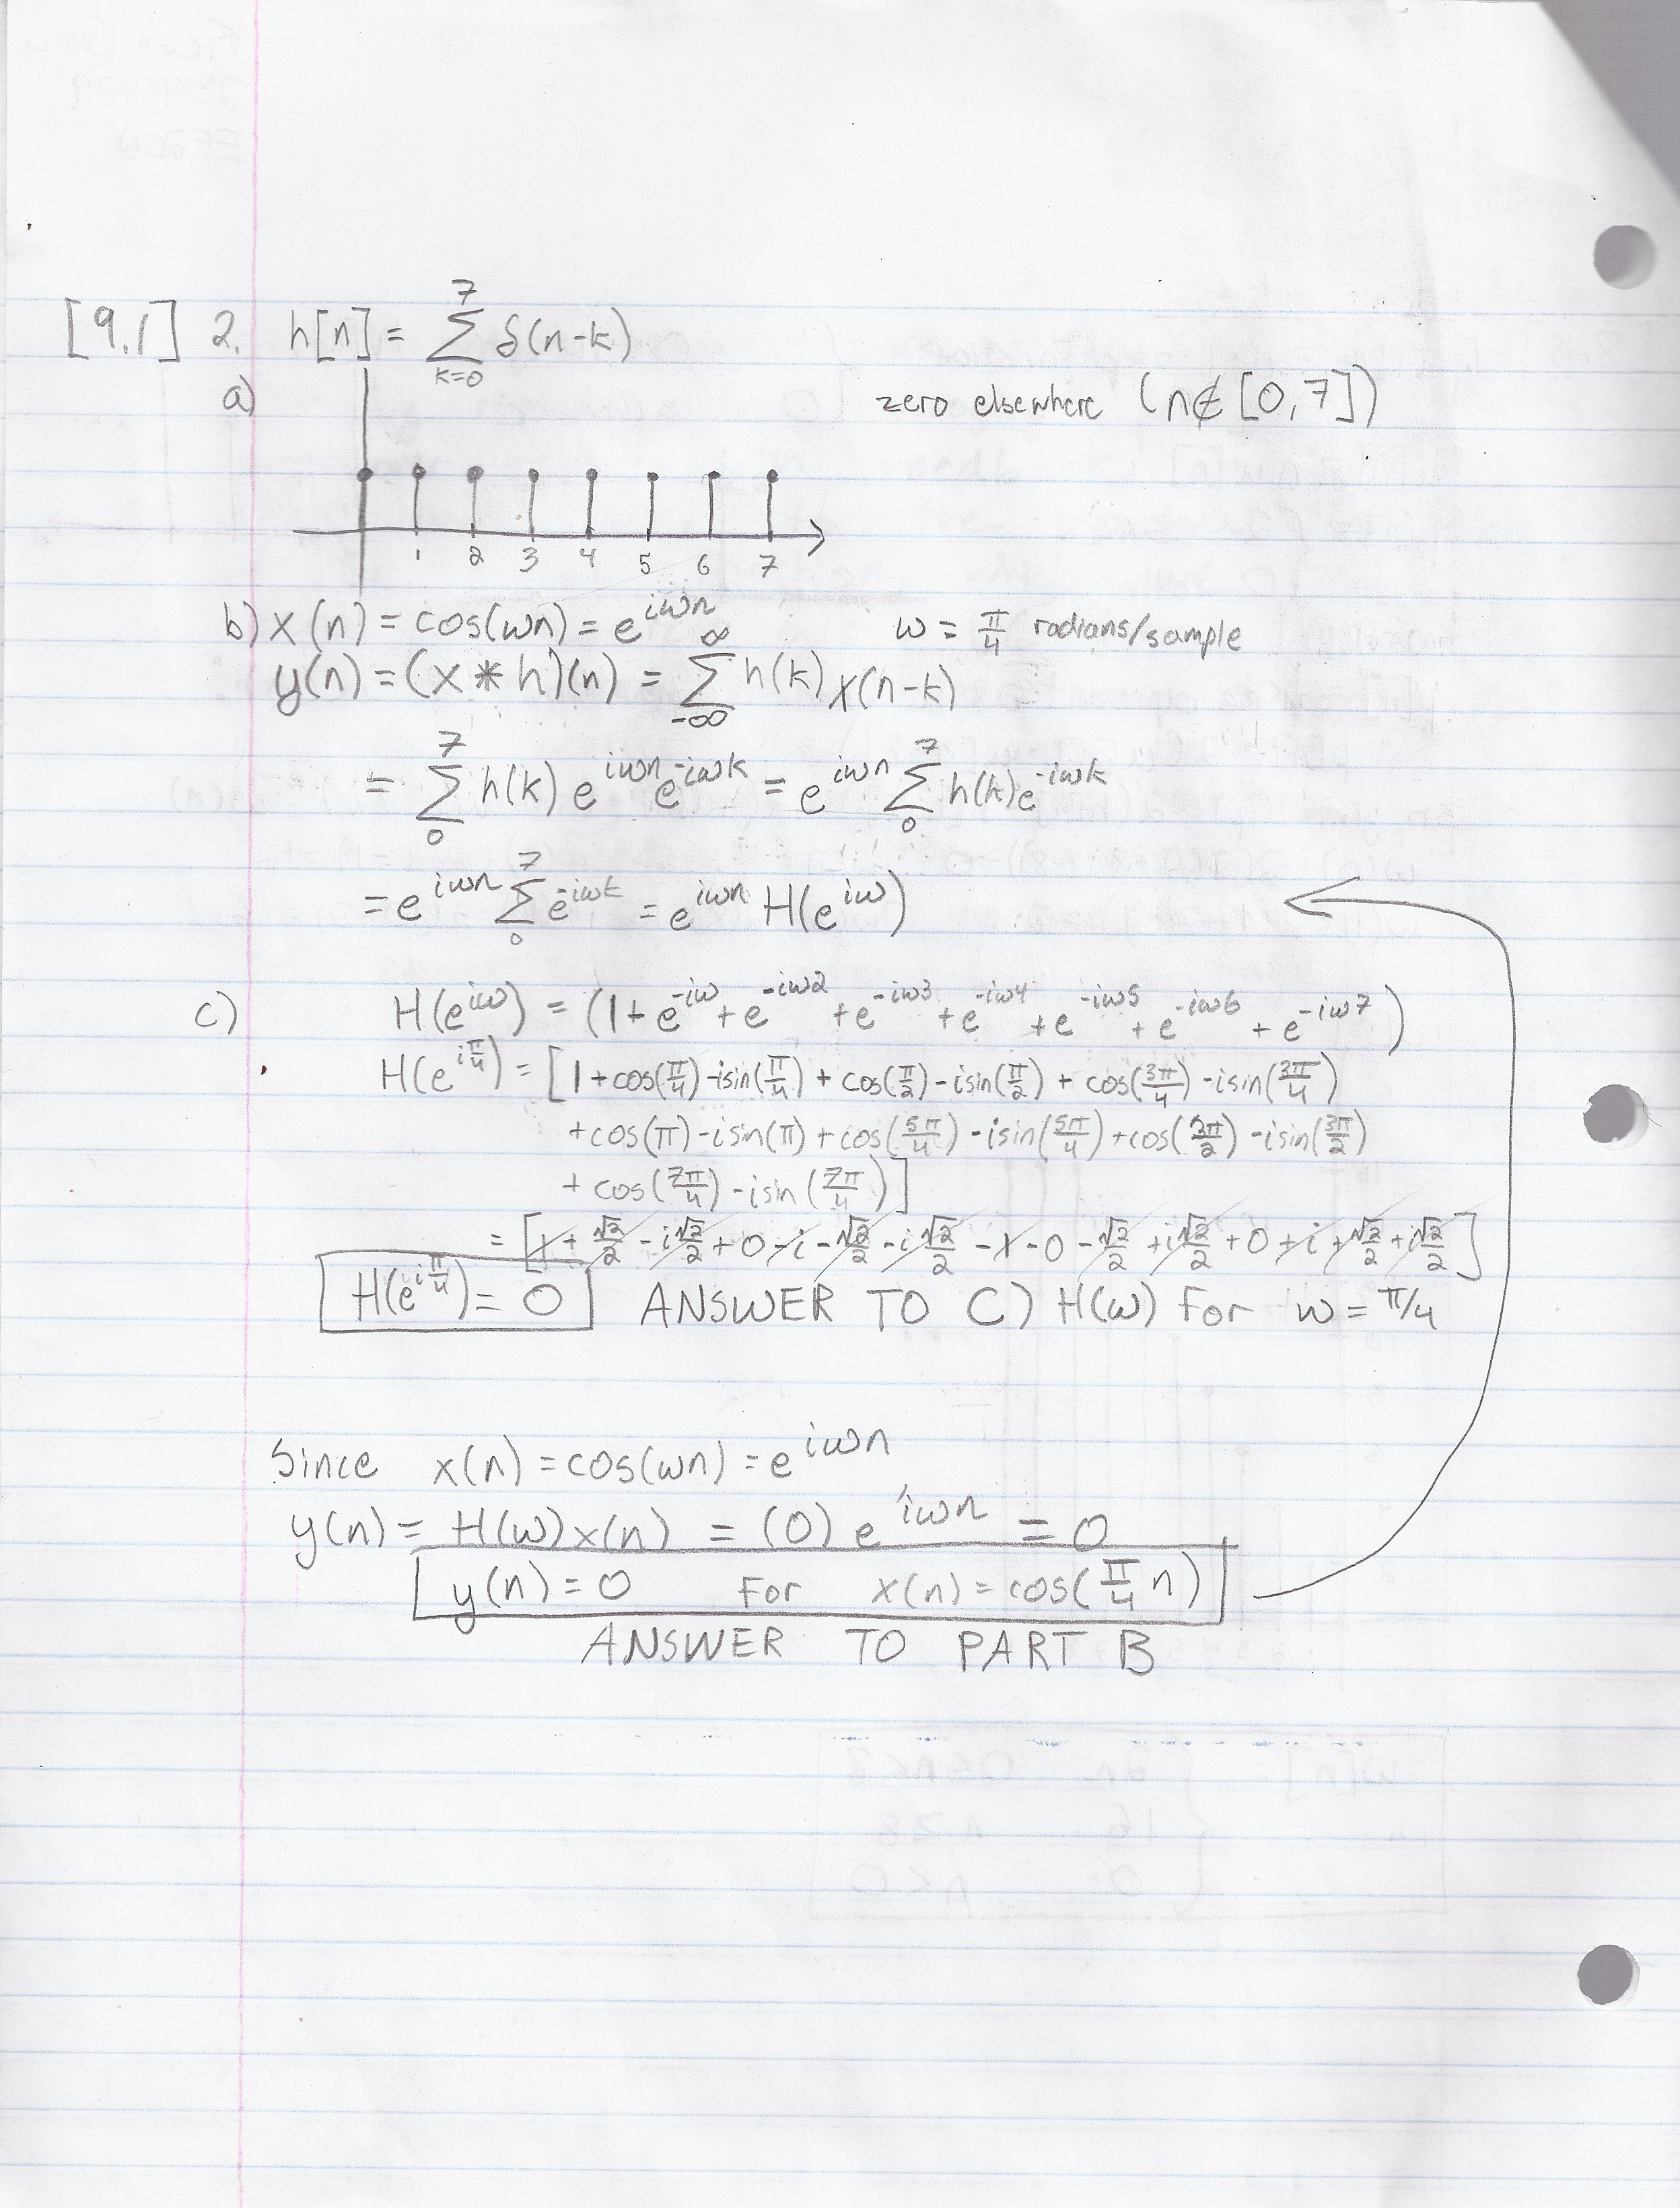 [9.1] 2. h[n] = 7 Σ k=0 δ(n-k)
a) zero elsewhere (n∉[0,7])
1 2 3 4 5 6 7
b) x(n) = cos(ωn) = e^{iωn} ω = π/4 radians/sample
y(n) = (x * h)(n) = ∞ Σ -∞ h(k) x(n-k)
= 7 Σ 0 h(k) e^{iωn} e^{-iωk} = e^{iωn} 7 Σ 0 h(k) e^{-iωk}
= e^{iωn} 7 Σ 0 e^{-iωk} = e^{iωn} H(e^{iω})
c) H(e^{iω}) = (1 + e^{-iω} + e^{-iω2} + e^{-iω3} + e^{-iω4} + e^{-iω5} + e^{-iω6} + e^{-iω7})
H(e^{iπ/4}) = [1 + cos(π/4) - isin(π/4) + cos(π/2) - isin(π/2) + cos(3π/4) - isin(3π/4)
+ cos(π) - isin(π) + cos(5π/4) - isin(5π/4) + cos(3π/2) - isin(3π/2)
+ cos(7π/4) - isin(7π/4)]
= [1 + √2/2 - i√2/2 + 0 - i - √2/2 - i√2/2 - 1 - 0 - √2/2 + i√2/2 + 0 + i + √2/2 + i√2/2]
H(e^{iπ/4}) = 0 ANSWER TO C) H(ω) For ω = π/4
Since x(n) = cos(ωn) = e^{iωn}
y(n) = H(ω) x(n) = (0) e^{iωn} = 0
y(n) = 0 For x(n) = cos(π/4 n)
ANSWER TO PART B